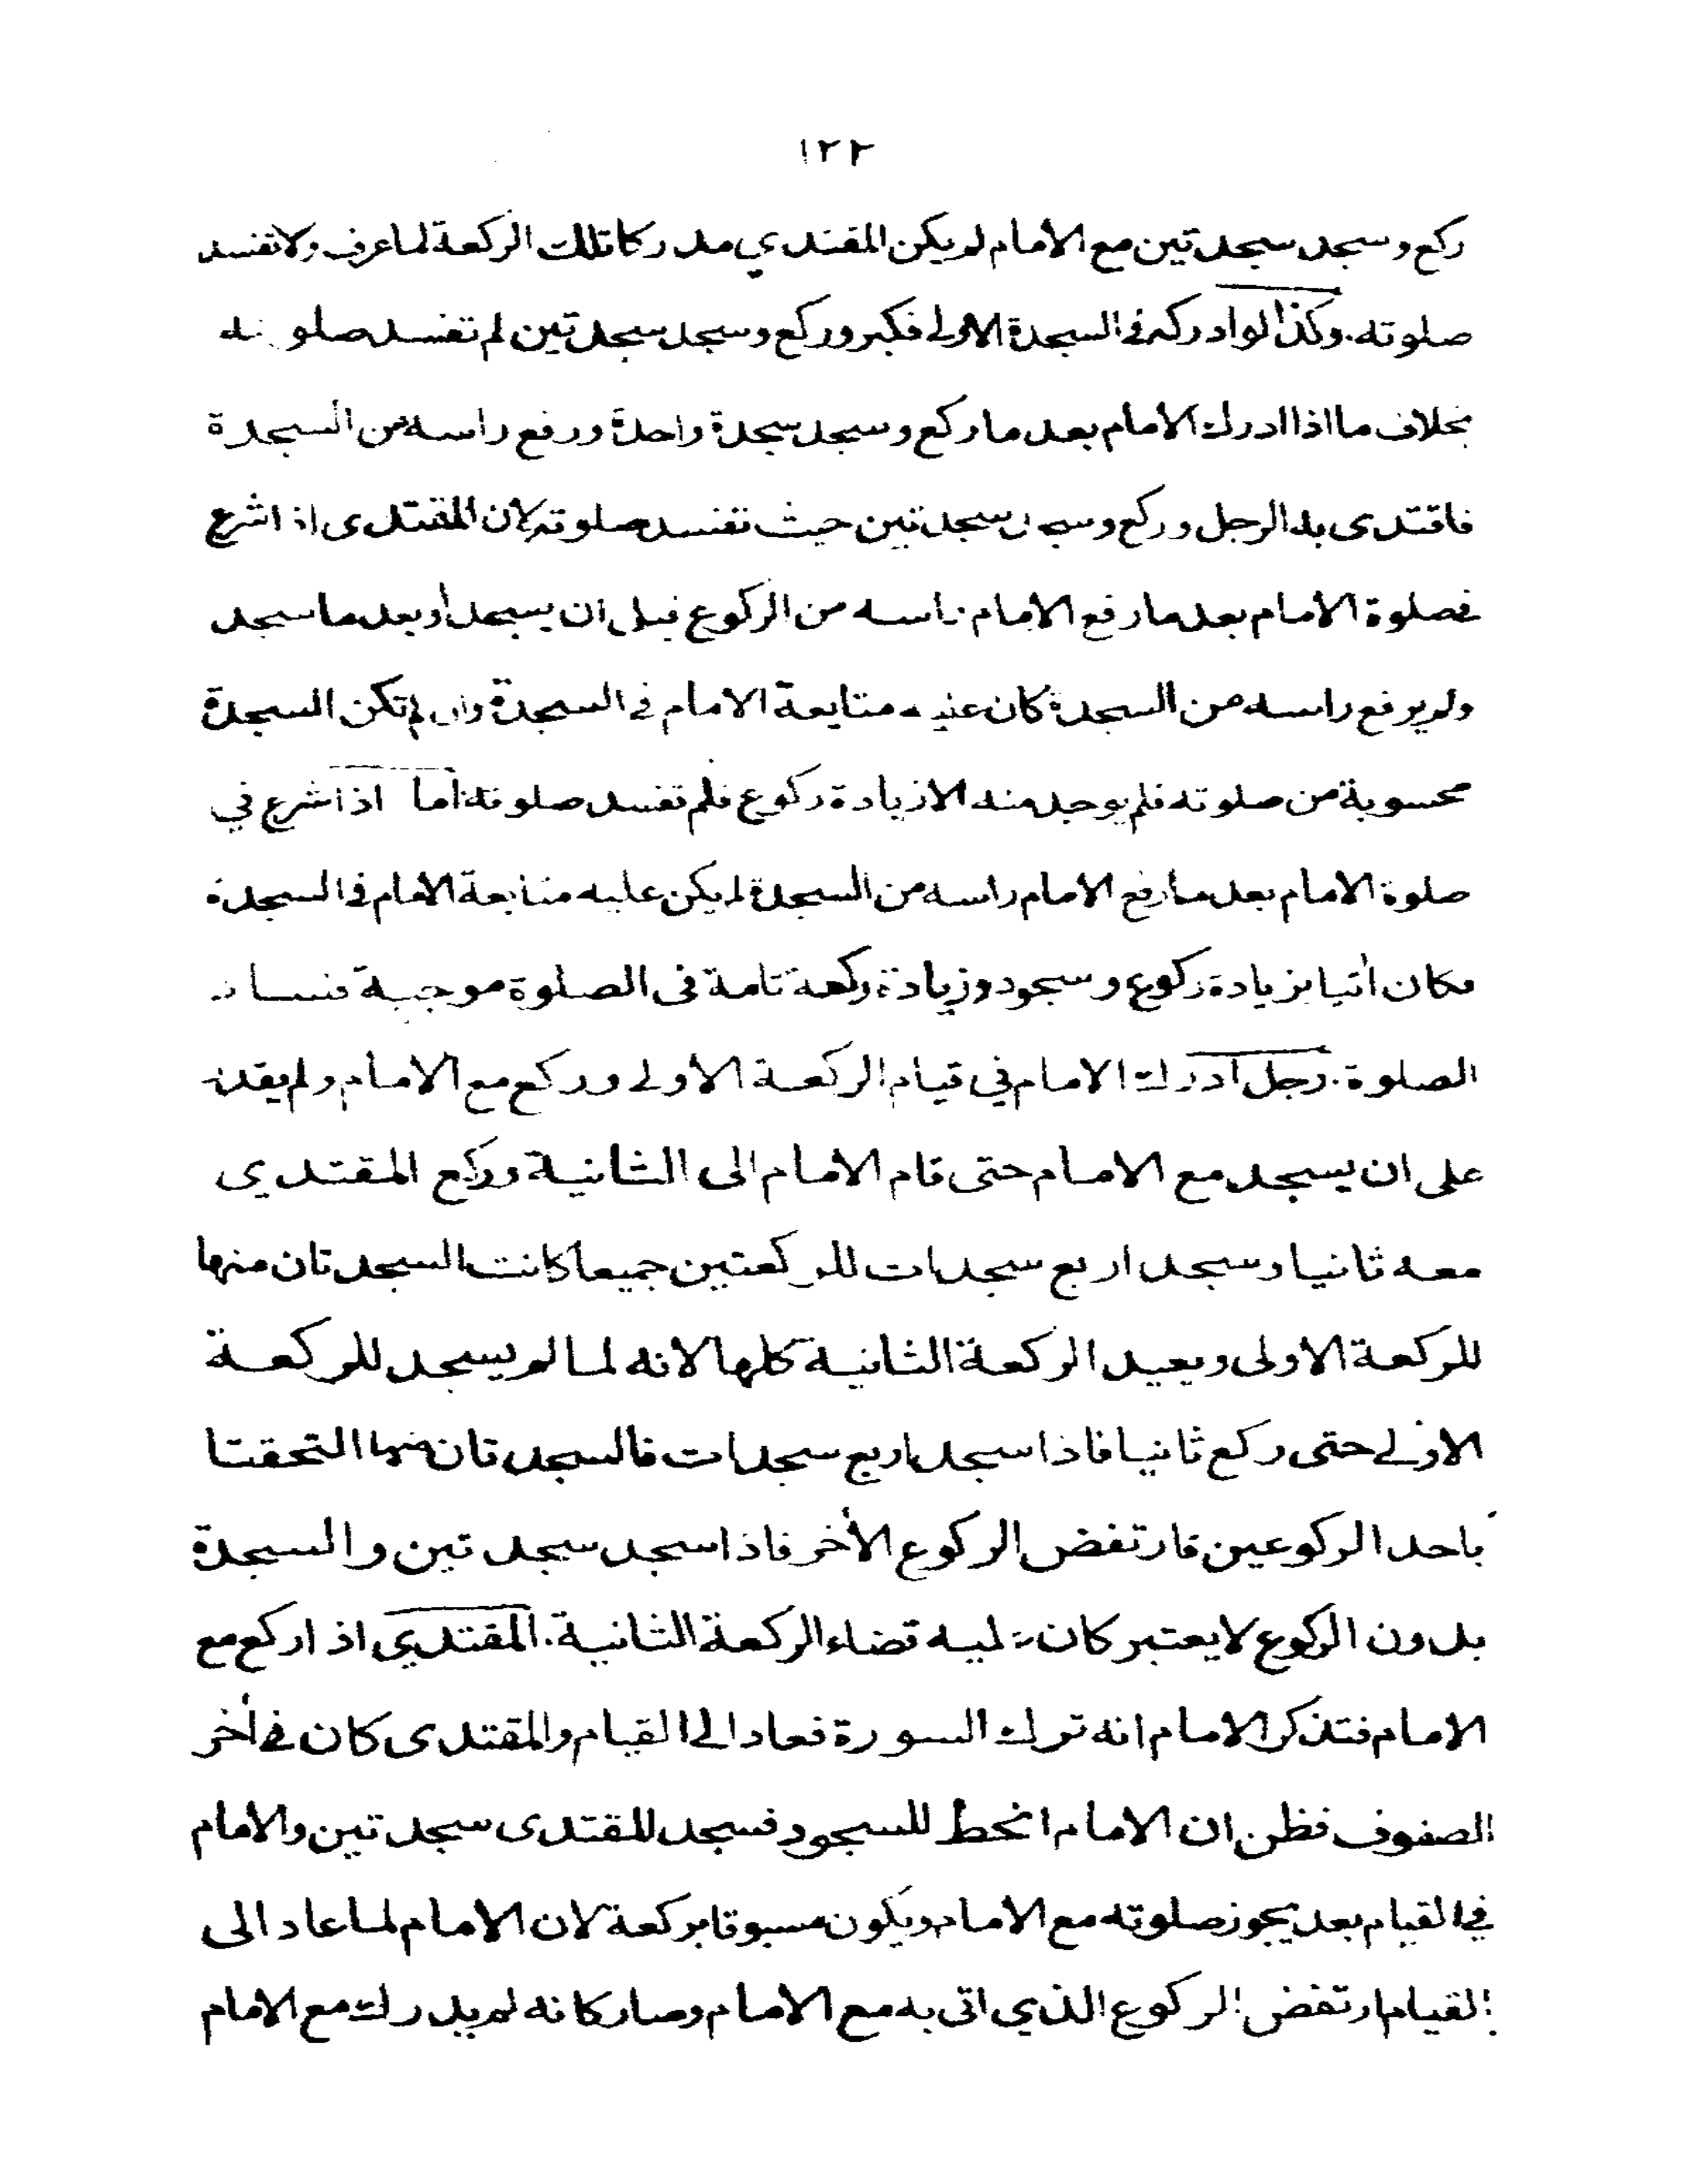 ١٢٢
ركع وسجد سجدتين مع الامام لم يكن المقتدي مدركا تلك الركعة لما عرف ولا تفسد
صلوته. وكذا لو ادركه فى السجدة الاولى فكبر وركع وسجد سجدتين لم تفسد صلوته
بخلاف ما اذا ادرك الامام بعد ما ركع وسجد سجدة واحدة ورفع راسه من السجدة
فاقتدى به الرجل وركع وسجد سجدتين حيث تفسد صلوته لان المقتدى اذا شرع
فى صلوة الامام بعد ما رفع الامام راسه من الركوع قبل ان يسجد او بعد ما سجد
ولم يرفع راسه من السجدة كان عليه متابعة الامام فى السجدة وان لم تكن السجدة
محسوبة من صلوته فلم يوجد منه الا زيادة ركوع فلم تفسد صلوته اما اذا شرع في
صلوة الامام بعد ما رفع الامام راسه من السجدة لم يكن عليه متابعة الامام فى السجدة
فكان اٰتيا بزيادة ركوع وسجود وزيادة ركعة تامة فى الصلوة موجبة فساد
الصلوة. رجل ادرك الامام في قيام الركعة الاولى وركع مع الامام ولم يقدر
على ان يسجد مع الامام حتى قام الامام الى الثانية وركع المقتدي
معه ثانيا وسجد اربع سجدات للركعتين جميعا كانت السجدتان منها
للركعة الاولى ويعيد الركعة الثانية كلها لانه لما لم يسجد للركعة
الاولى حتى ركع ثانيا فاذا سجد اربع سجدات فالسجدتان منها التحقتا
باحد الركوعين فارتفض الركوع الأخر فاذا سجد سجدتين والسجدة
بدون الركوع لا يعتبر كان عليه قضاء الركعة الثانية. المقتدي اذا ركع مع
الامام فتذكر الامام انه ترك السورة فعاد الى القيام والمقتدى كان فى أخر
الصفوف فظن ان الامام انحط للسجود فسجد المقتدى سجدتين والامام
في القيام بعد يجوز صلوته مع الامام ويكون مسبوقا بركعة لان الامام لما عاد الى
القيام ارتفض الركوع الذي اتى به مع الامام وصار كانه لم يدرك مع الامام